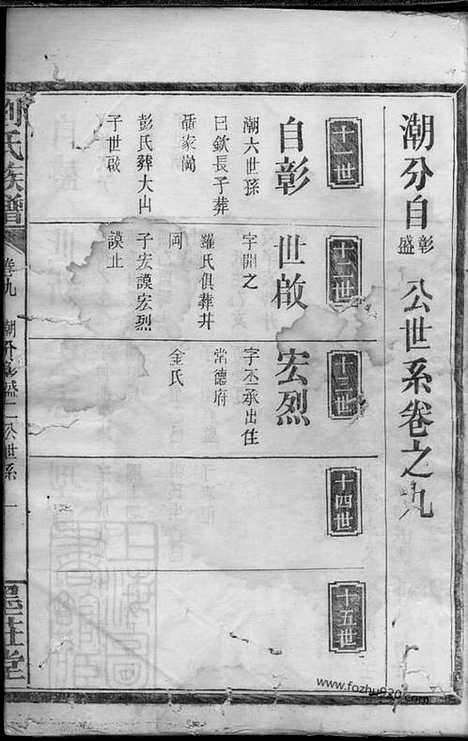 潮分自彰盛公世系卷之九
十一世
自彰
潮六世孫
曰欽長子葬
家崗
彭氏葬大山
子世啟
十二世
世啟
字開之
羅氏俱葬井
岡
子宏謨宏烈
謨止
十三世
宏烈
字丕承出住
常德府
金氏
十四世
十五世
氏族譜
卷九
潮分彰盛二公世系
一
堂
www.fozhu920.com